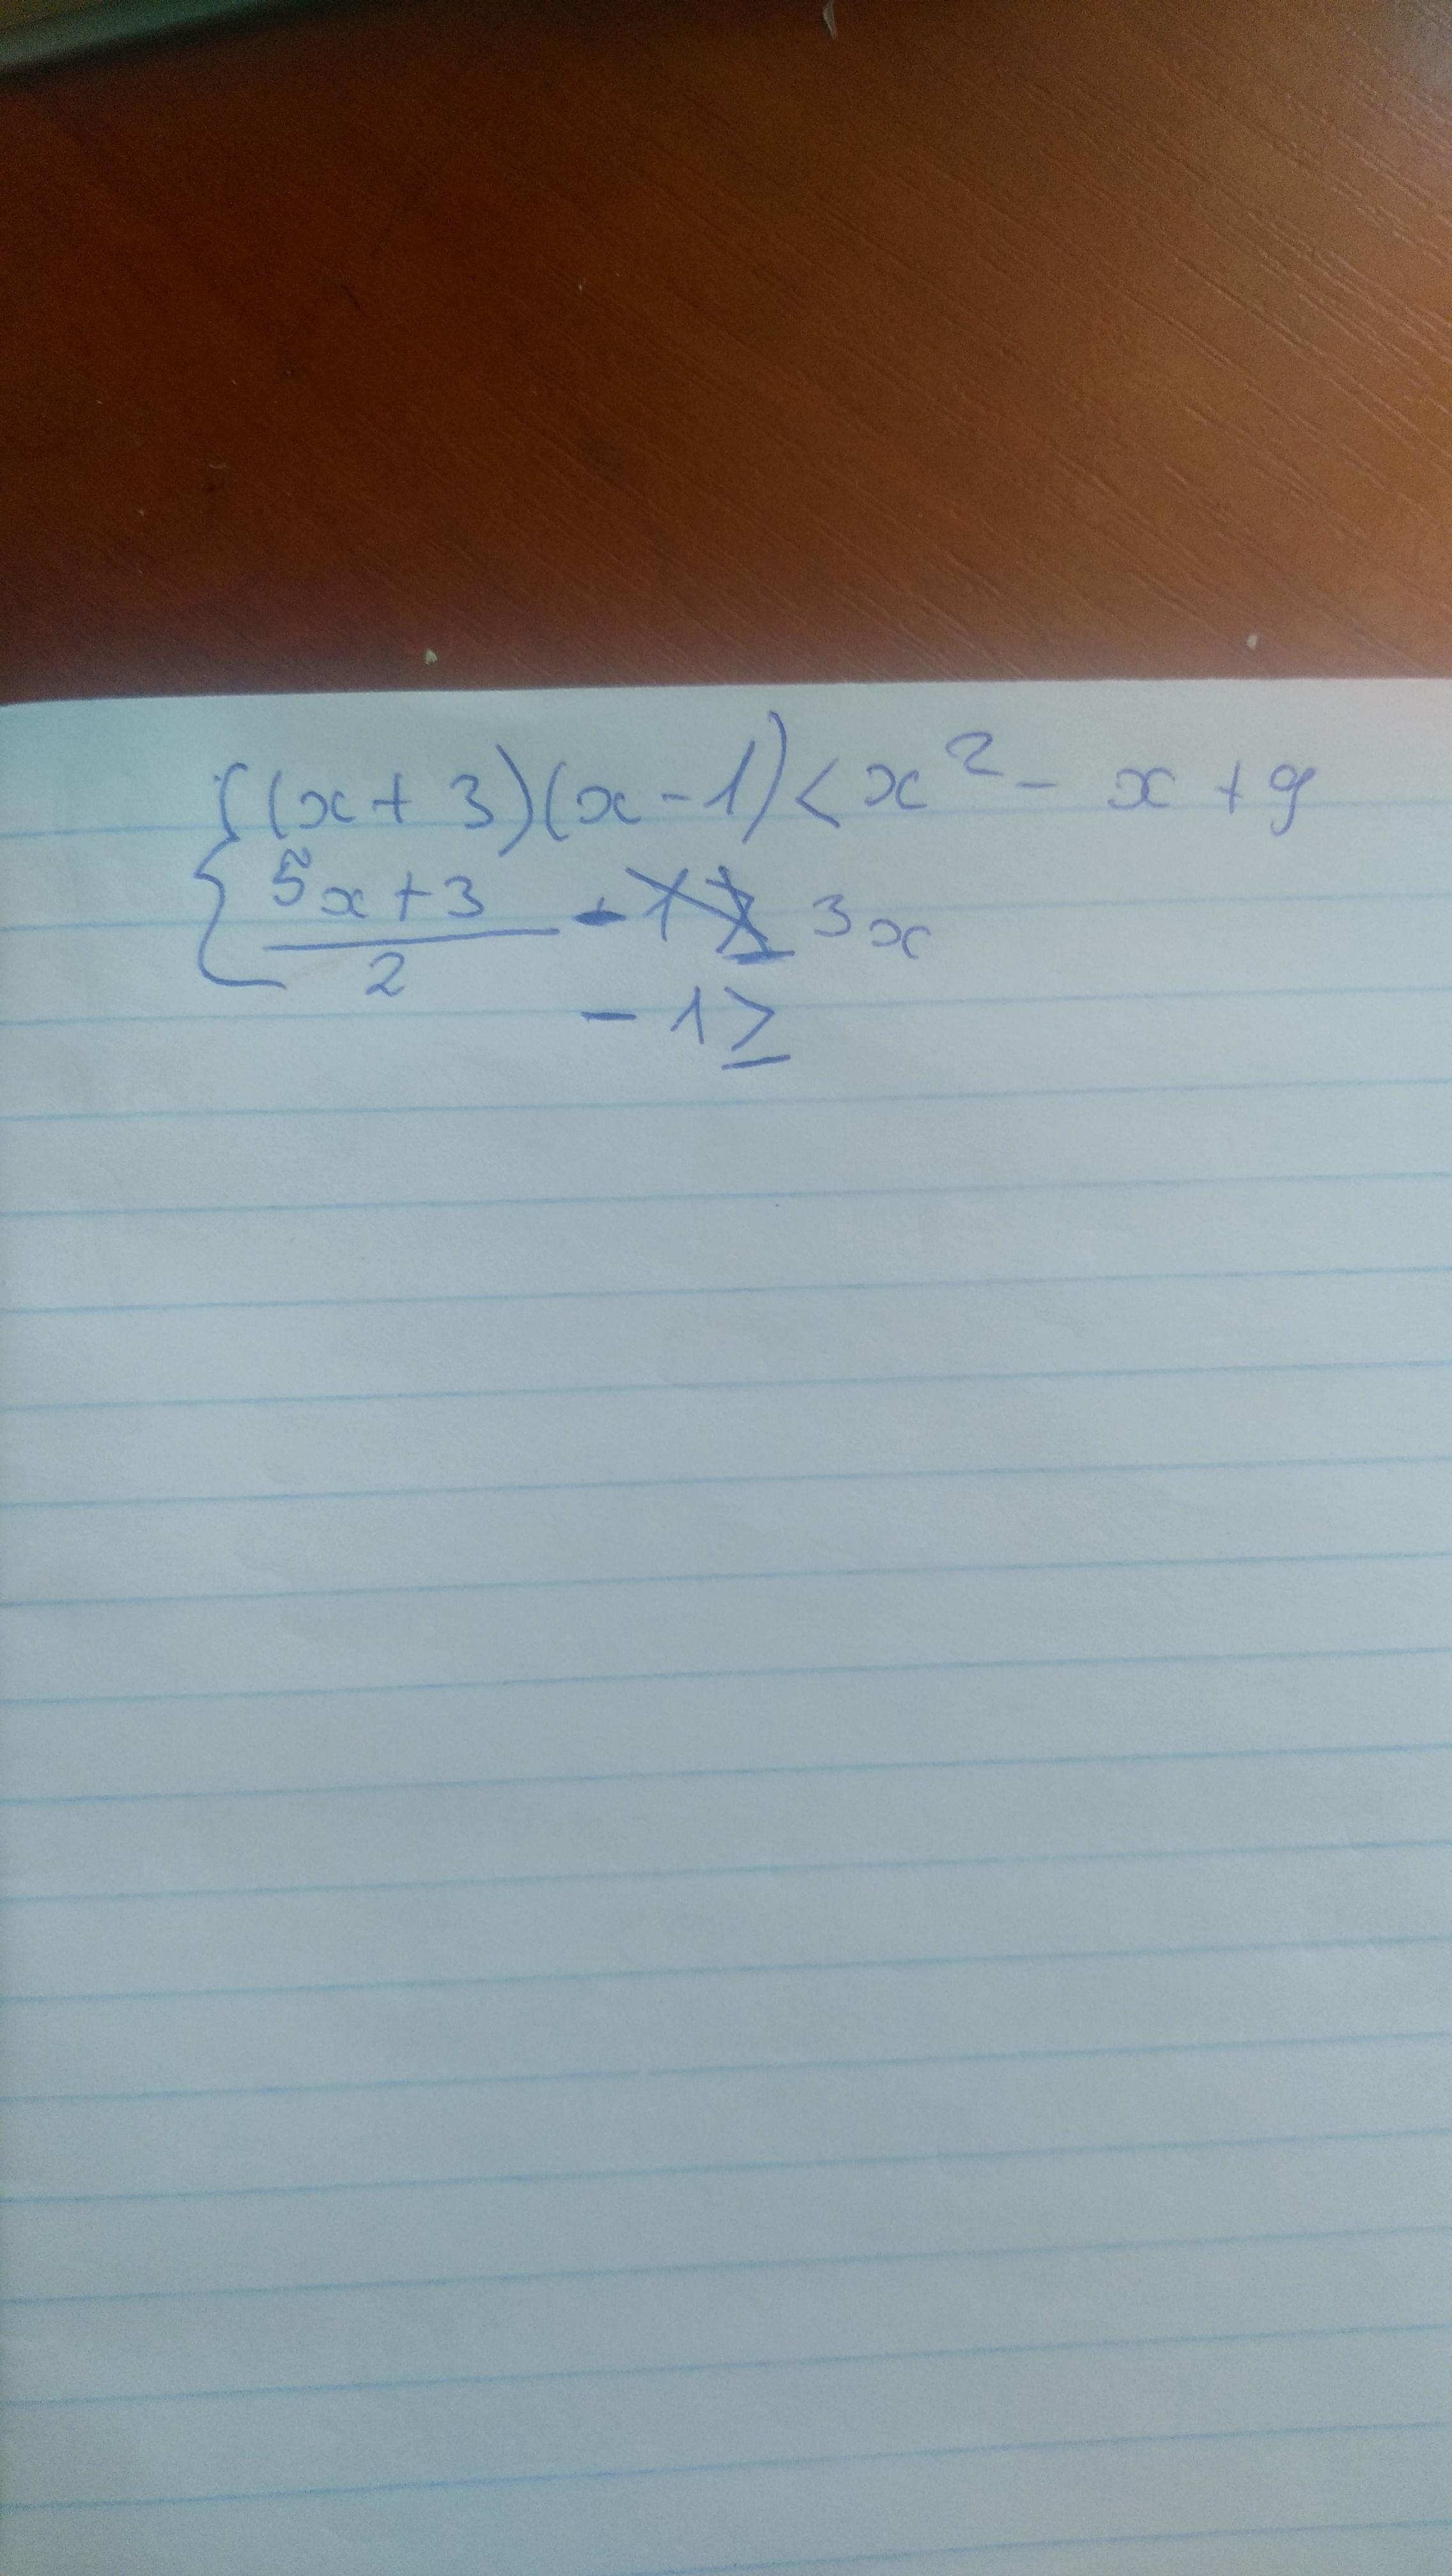 {(x+3)(x-1)<x²-x+9
5x+3
2
- 3x
-1≥